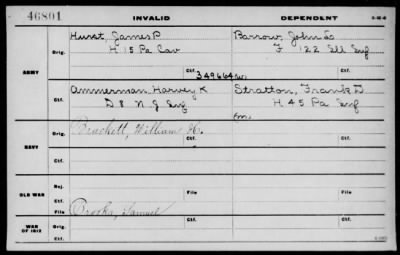 46801 INVALID DEPENDENT
Hurst, James P Barrow, John Lo
Orig. H 15 Pa Cav F 122 Ill Inf
ARMY Ctf. 349664
Ammerman, Harvey K Stratton, Frank D
Ctf. D 8 N J Inf H 45 Pa Inf
Orig. William H. Orig.
NAVY
Ctf. Ctf.
OLD WAR Rej. File File
Ctf.
File Brooks, Samuel
WAR OF 1812 Orig. Ctf.
Ctf.